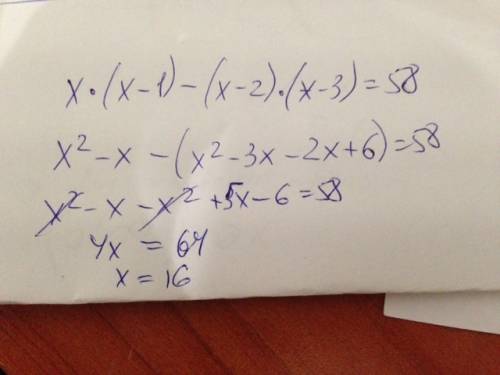 x·(x-1)-(x-2)·(x-3)=58
x²-x-(x²-3x-2x+6)=58
x²-x-x²+5x-6=58
4x=64
x=16